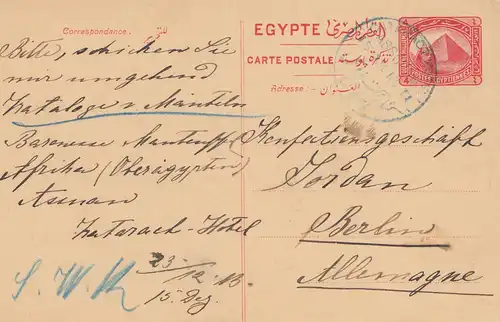 Correspondance.
EGYPTE
CARTE POSTALE تذكرة بوستة
Adresse: العنوان
Bitte, schicken Sie
mir umgehend
Kataloge v. Mänteln
Baronesse Manteuffel
Afrika (Oberägypten)
Assuan
Katarach-Hotel
23-
12.13
15. Dez.
S. W. K
Konfectionsgeschäft
Jordan
Berlin
Allemagne